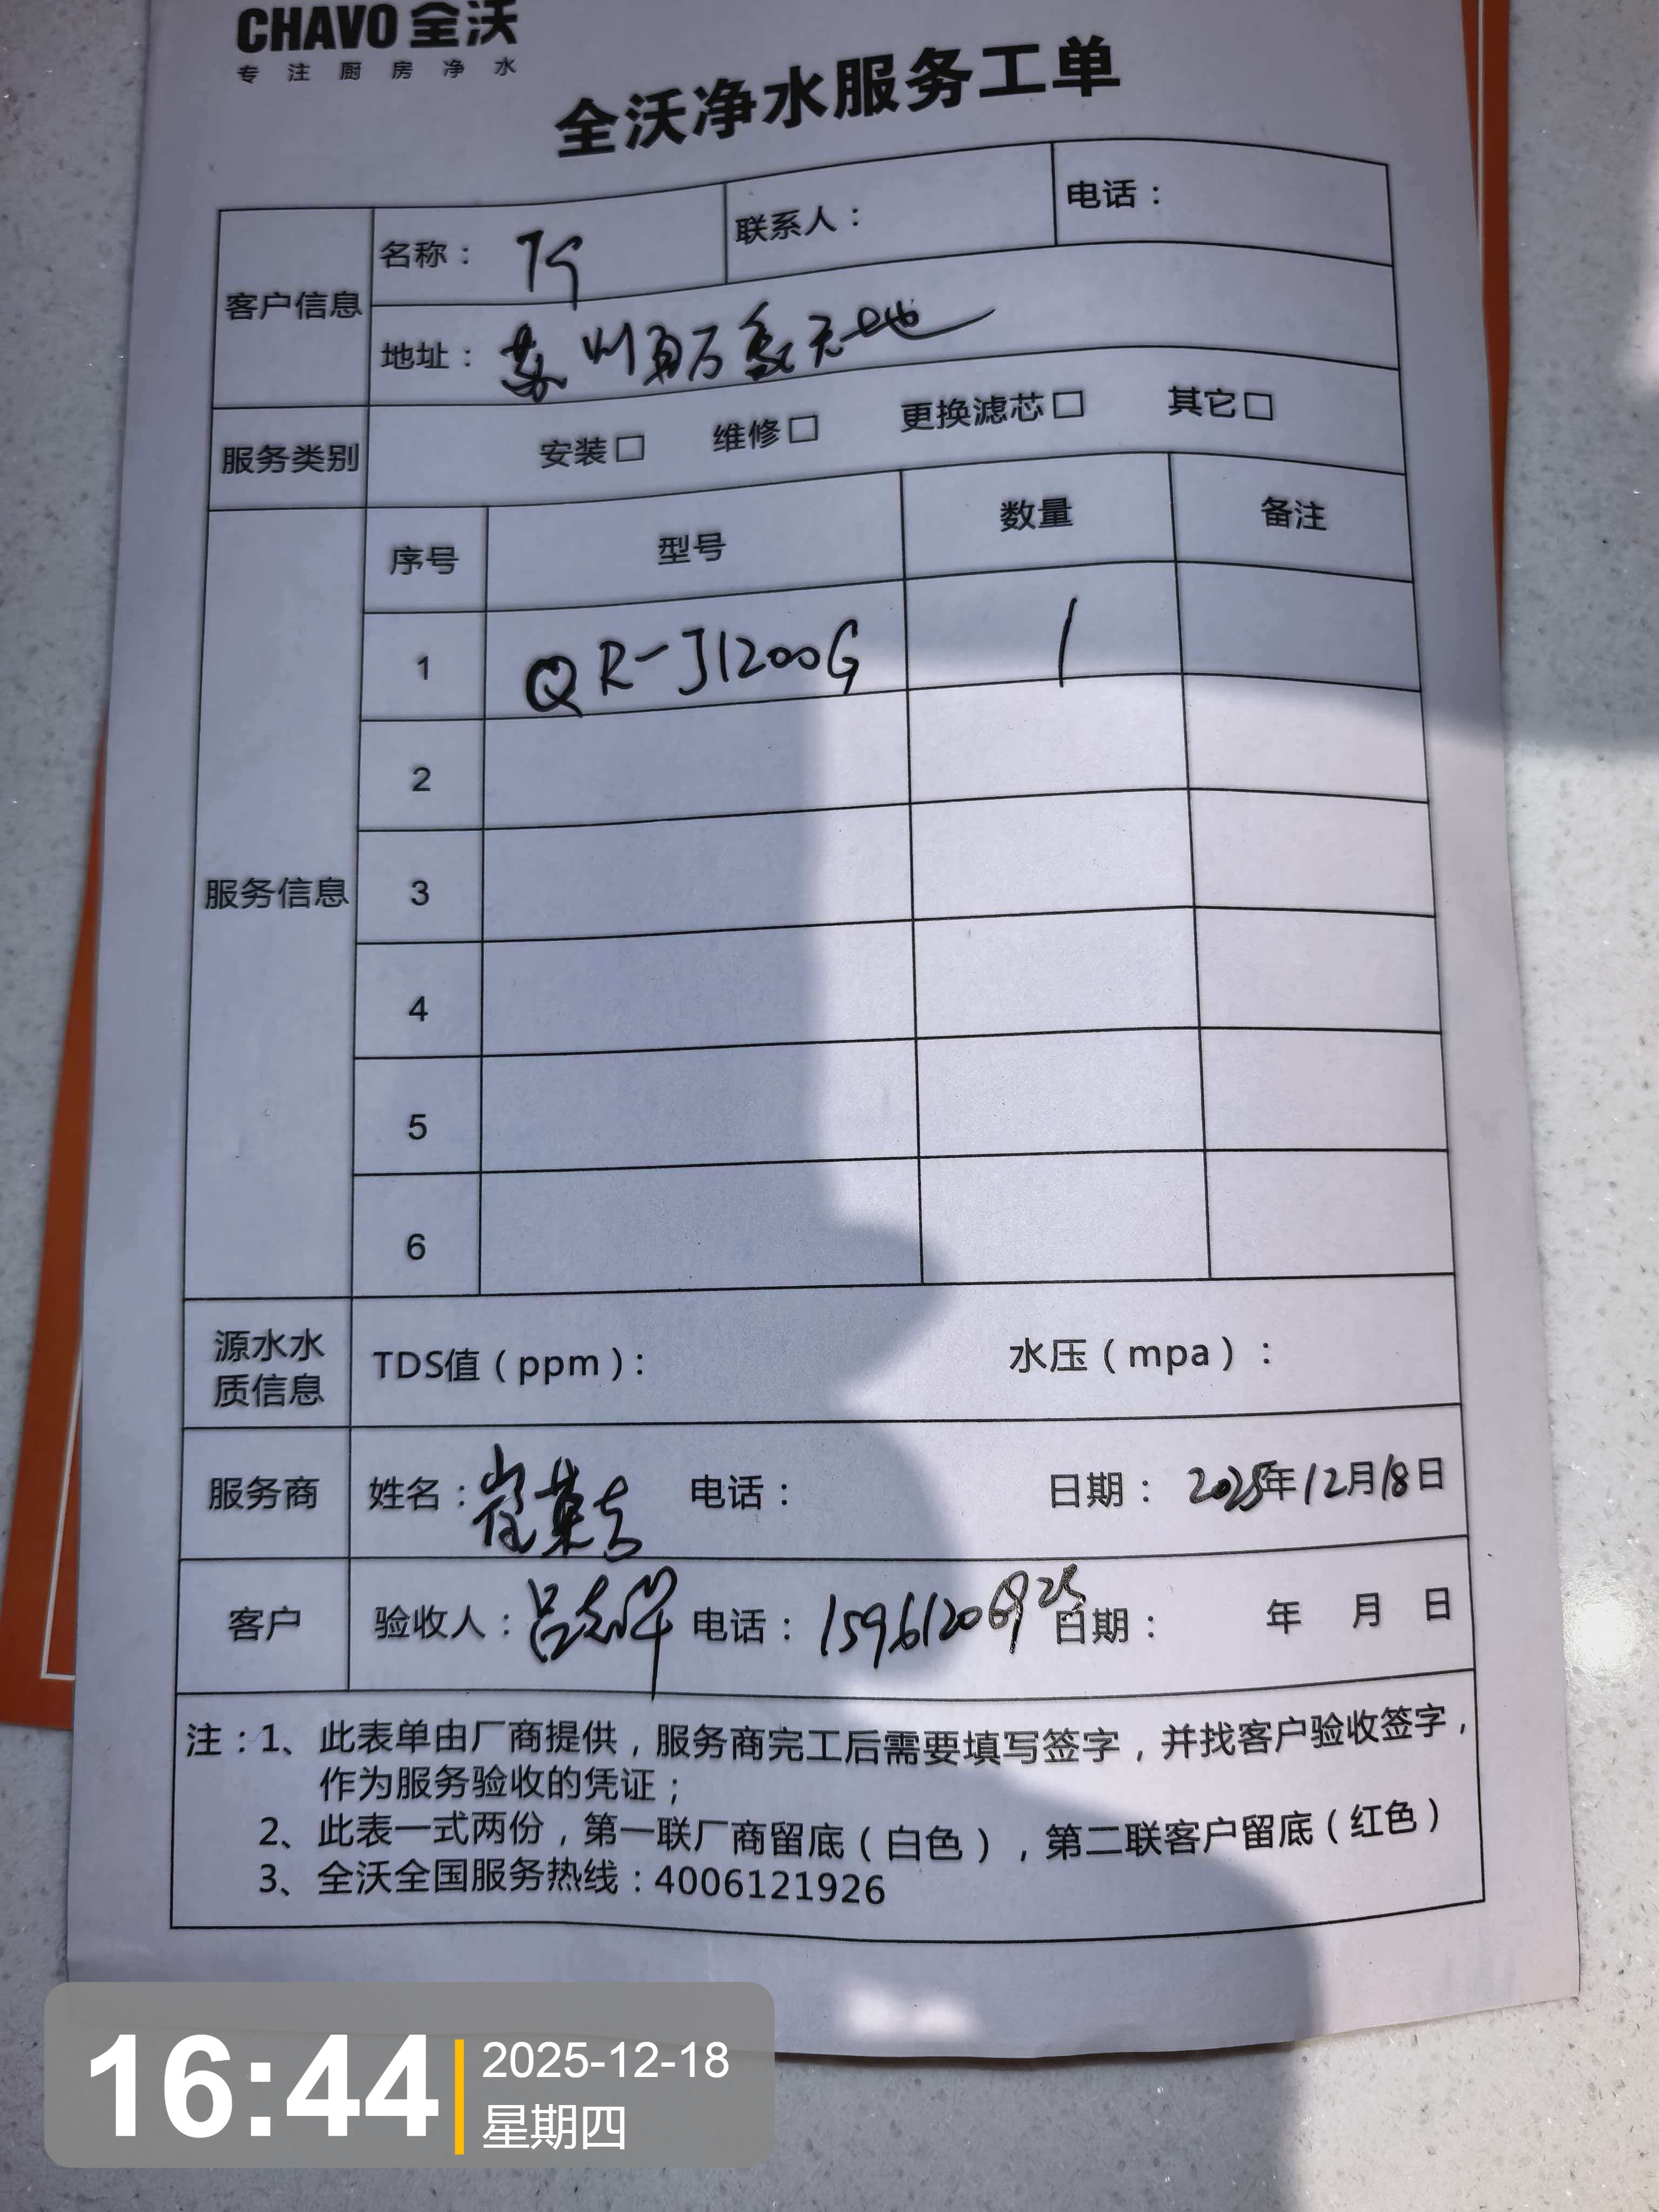 CHAVO 全沃
专注厨房净水
全沃净水服务工单
客户信息
名称：
联系人：
电话：
地址：苏州 万象天地
服务类别
安装□ 维修□ 更换滤芯□ 其它□
服务信息
序号 型号 数量 备注
1 QR-J1200G 1
2
3
4
5
6
源水水质信息
TDS值（ppm）： 水压（mpa）：
服务商 姓名：崔 电话： 日期：2025年12月18日
客户 验收人：吕志 电话： 日期： 年 月 日
注：1、此表单由厂商提供，服务商完工后需要填写签字，并找客户验收签字，
作为服务验收的凭证；
2、此表一式两份，第一联厂商留底（白色），第二联客户留底（红色）
3、全沃全国服务热线：4006121926
16:44
2025-12-18
星期四